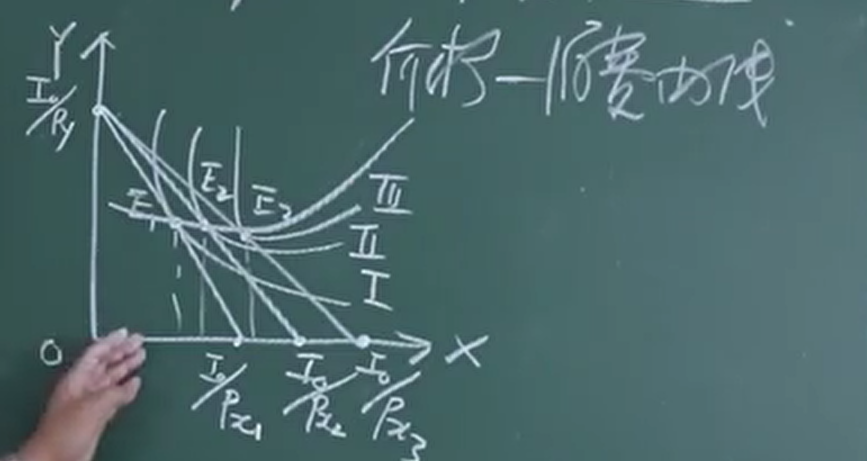 价格—消费曲线
Y
I₀/Py
E₁
E₂
E₃
III
II
I
O
X
I₀/Px₁
I₀/Px₂
I₀/Px₃